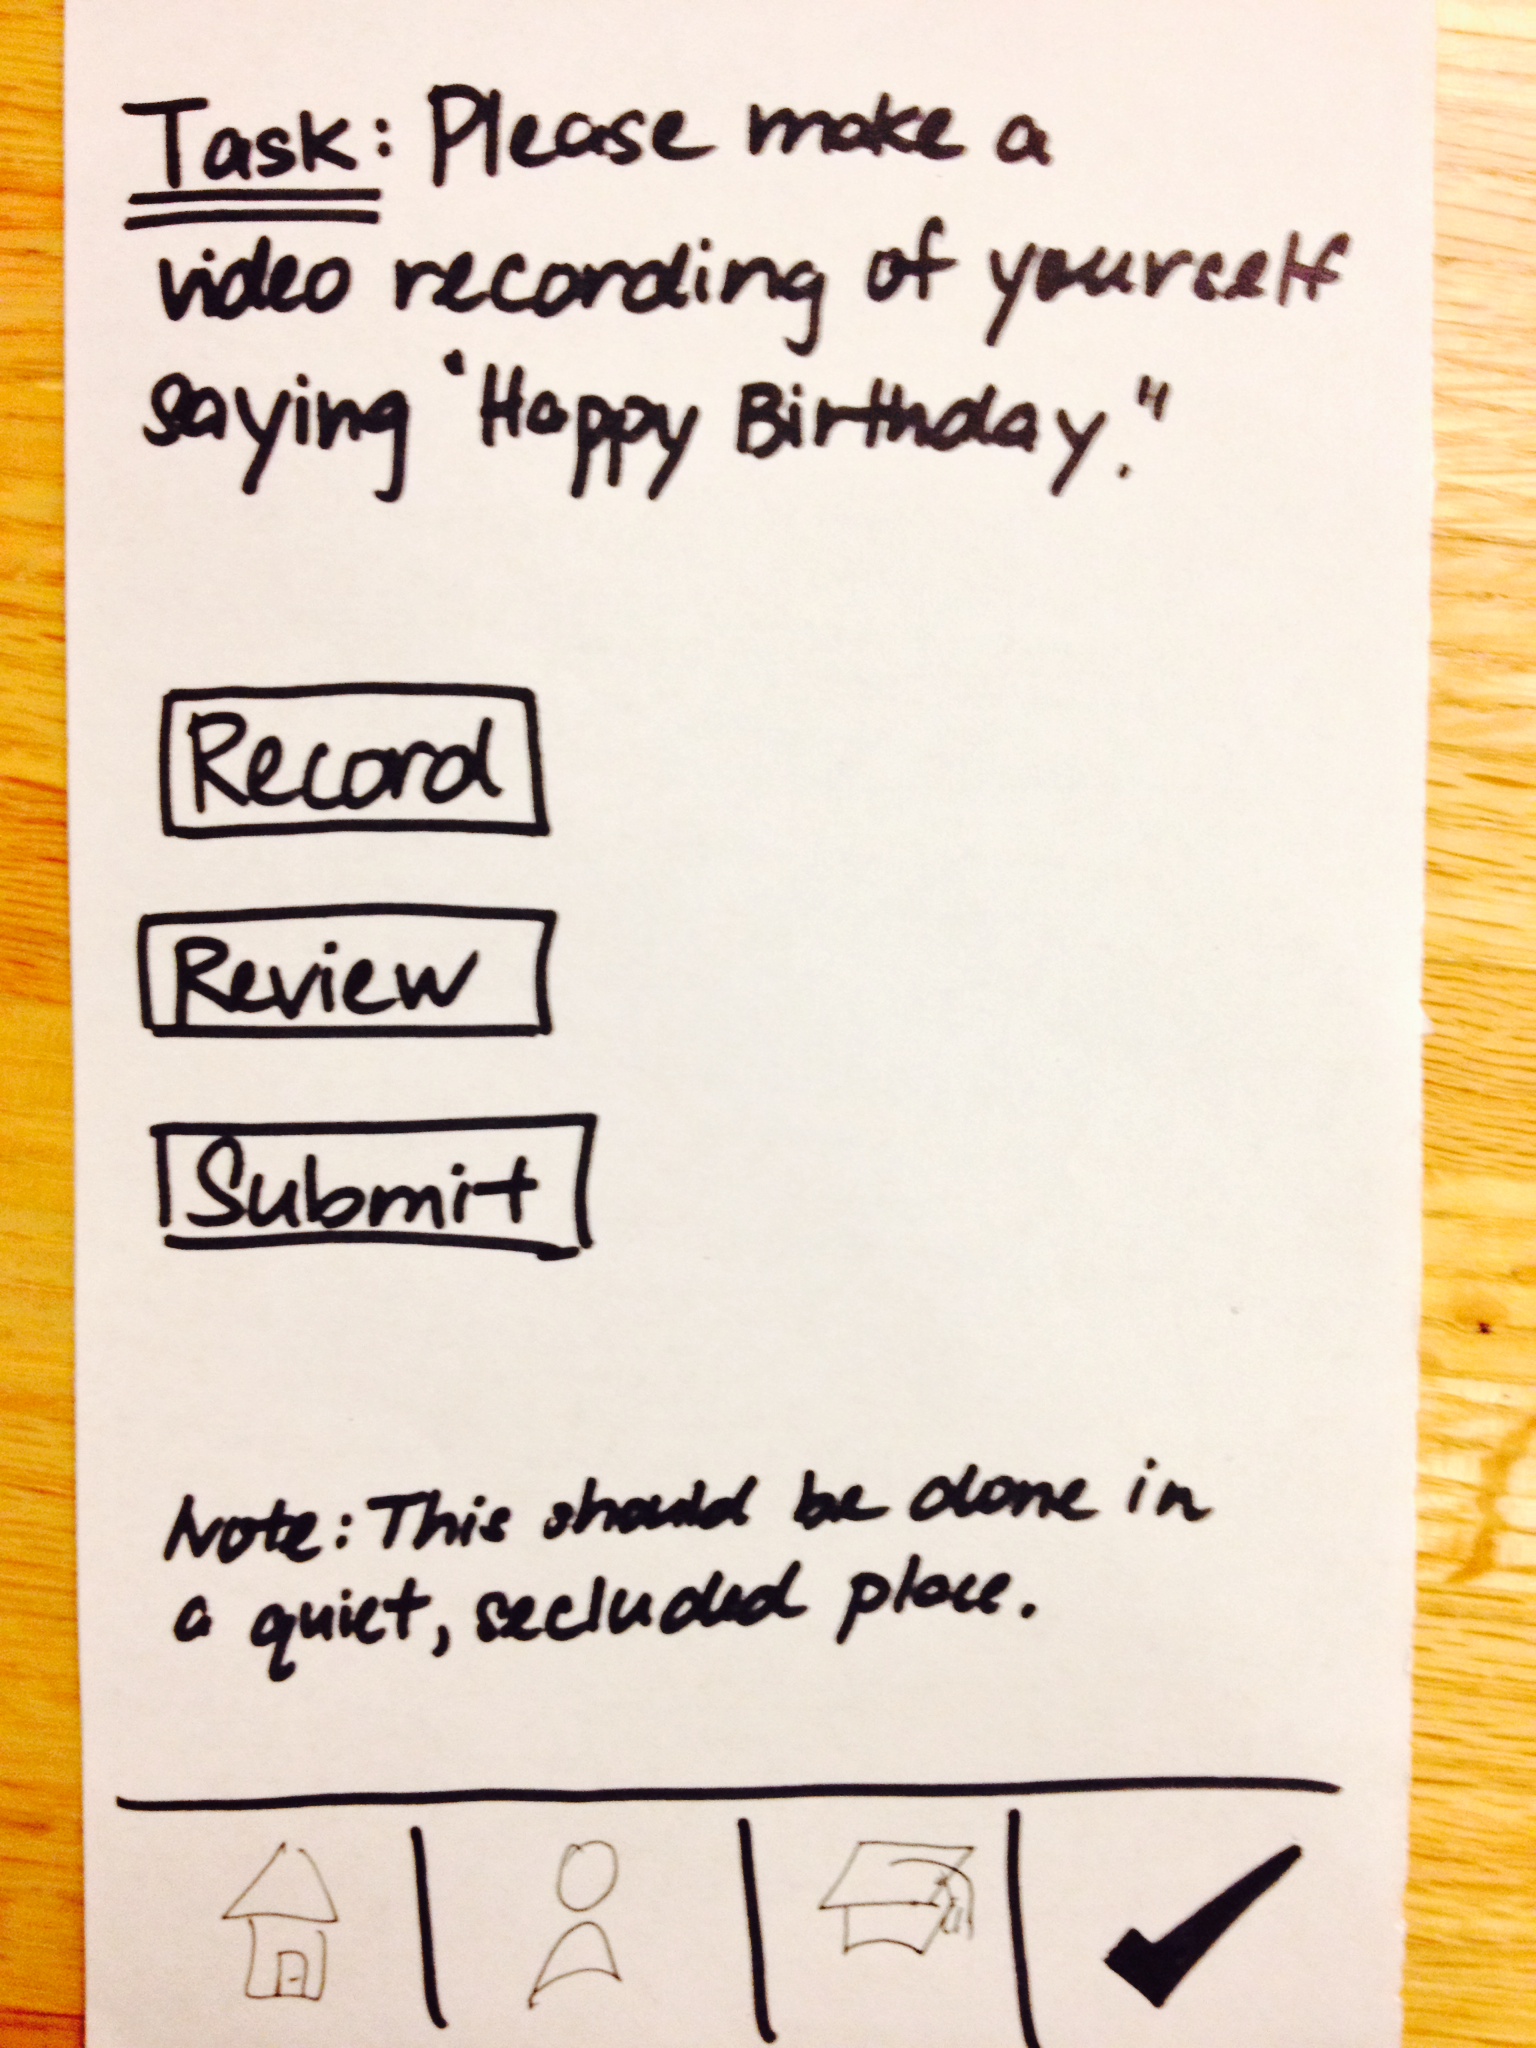 Task: Please make a
video recording of yourself
saying "Happy Birthday."
Record
Review
Submit
Note: This should be done in
a quiet, secluded place.